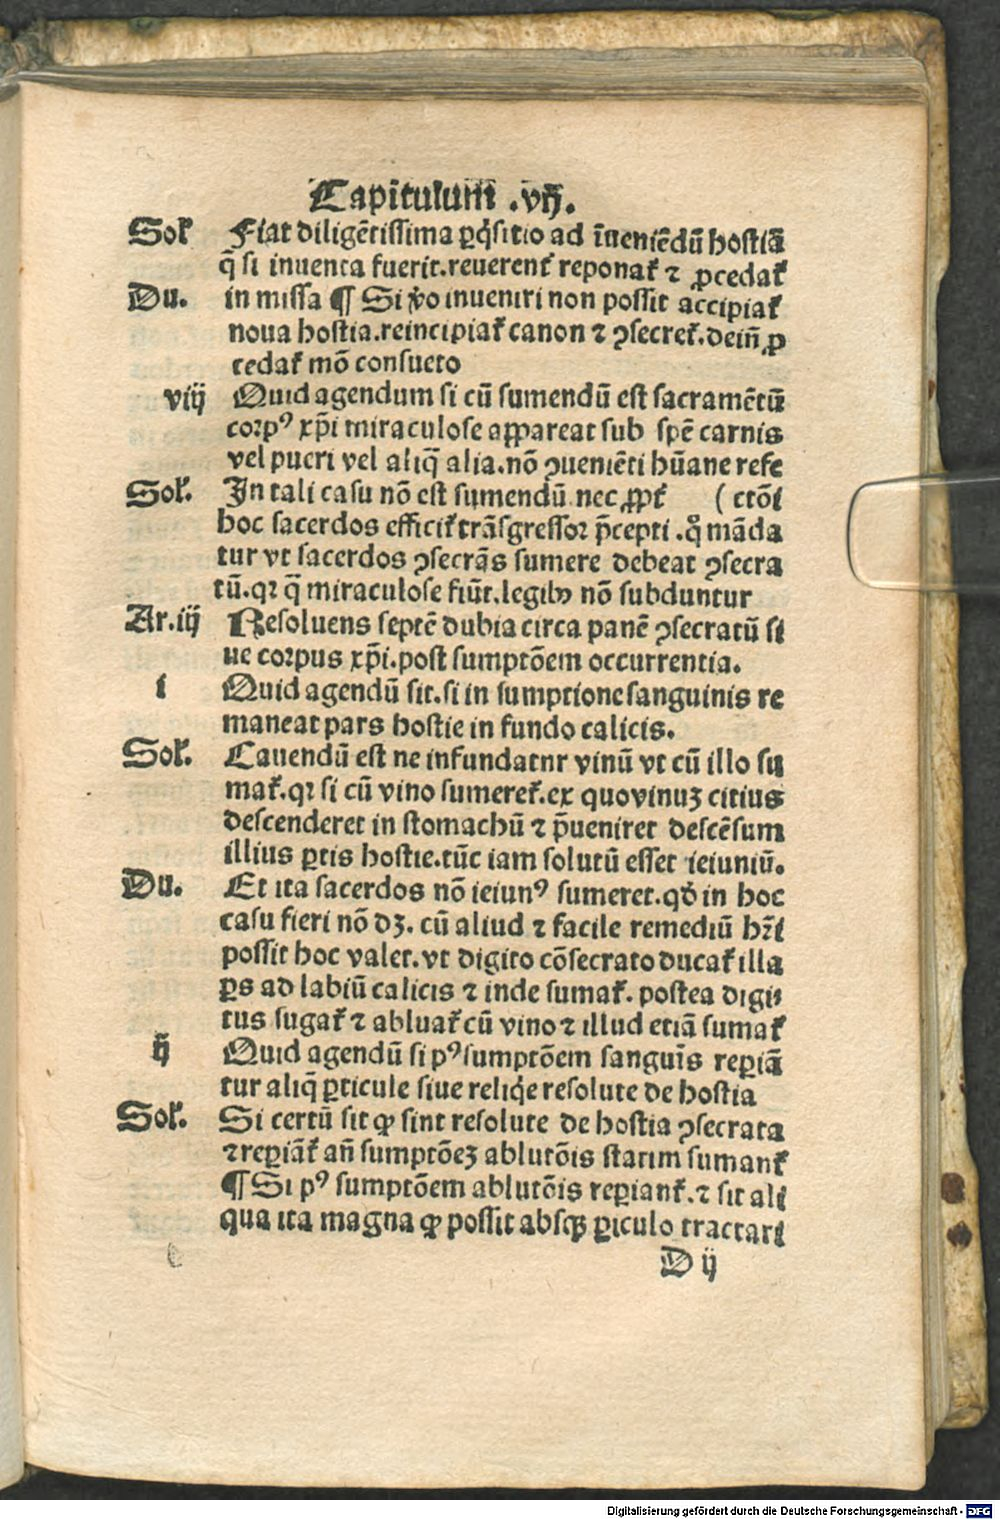 Capitulum .vij.
Solꝰ Fiat diligētissima ꝑq̇sitio ad īueniēdū hostiā
q̄ si inuenta fuerit.reuerent᷑ reponat᷑ ⁊ ꝓcedat᷑
Du. in missa ¶ Si v̊o inueniri non possit accipiat᷑
noua hostia.reincipiat᷑ canon ⁊ ꝯsecret᷑.dein̄ ꝓ
cedat᷑ mō consueto
viij Quid agendum si cū sumendū est sacramētū
corpꝰ xp̄i miraculose aꝑpareat sub spē carnis
vel pueri vel aliq̄ alia.nō ꝯueniēti hūane refe
Sol᷑. In tali casu nō est sumendū nec ꝓpt᷑ ( ctōi
hoc sacerdos efficit᷑ trāsgressor p̄cepti .q̊ māda
tur vt sacerdos ꝯsecrās sumere debeat ꝯsecra
tū.qꝛ q̄ miraculose fiūt.legibꝰ nō subduntur
Ar.iij Resoluens septē dubia circa panē ꝯsecratū si
ue corpus xp̄i.post sumptōem occurrentia.
i Quid agendū sit.si in sumptione sanguinis re
maneat pars hostie in fundo calicis.
Sol᷑. Cauendū est ne infundatnr vinū vt cū illo su
mat᷑.qꝛ si cū vino sumeret᷑.ex quo vinuꝫ citius
descenderet in stomachū ⁊ p̄ueniret descēsum
illius ꝑtis hostie.tūc iam solutū esset ieiuniū.
Du. Et ita sacerdos nō ieiunꝰ sumeret.qd̓ in hoc
casu fieri nō dꝫ. cū aliud ⁊ facile remediū hr̄i
possit hoc valet.vt digito cōsecrato ducat᷑ illa
ꝑs ad labiū calicis ⁊ inde sumat᷑. postea digi⸗
tus sugat᷑ ⁊ abluat᷑ cū vino ⁊ illud etiā sumat᷑
ij Quid agendū si pꝰ sumptōem sanguīs reꝑiā
tur aliq̄ ꝑticule siue reliq̇e resolute de hostia
Sol᷑. Si certū sit ꝙ sint resolute de hostia ꝯsecrata
⁊ reꝑiāt᷑ an̄ sumptōeꝫ ablutōis statim sumant᷑
¶ Si pꝰ sumptōem ablutōis reꝑiant᷑.⁊ sit ali
qua ita magna ꝙ possit absqꝫ ꝑiculo tractari
D ij
Digitalisierung gefördert durch die Deutsche Forschungsgemeinschaft - DFG